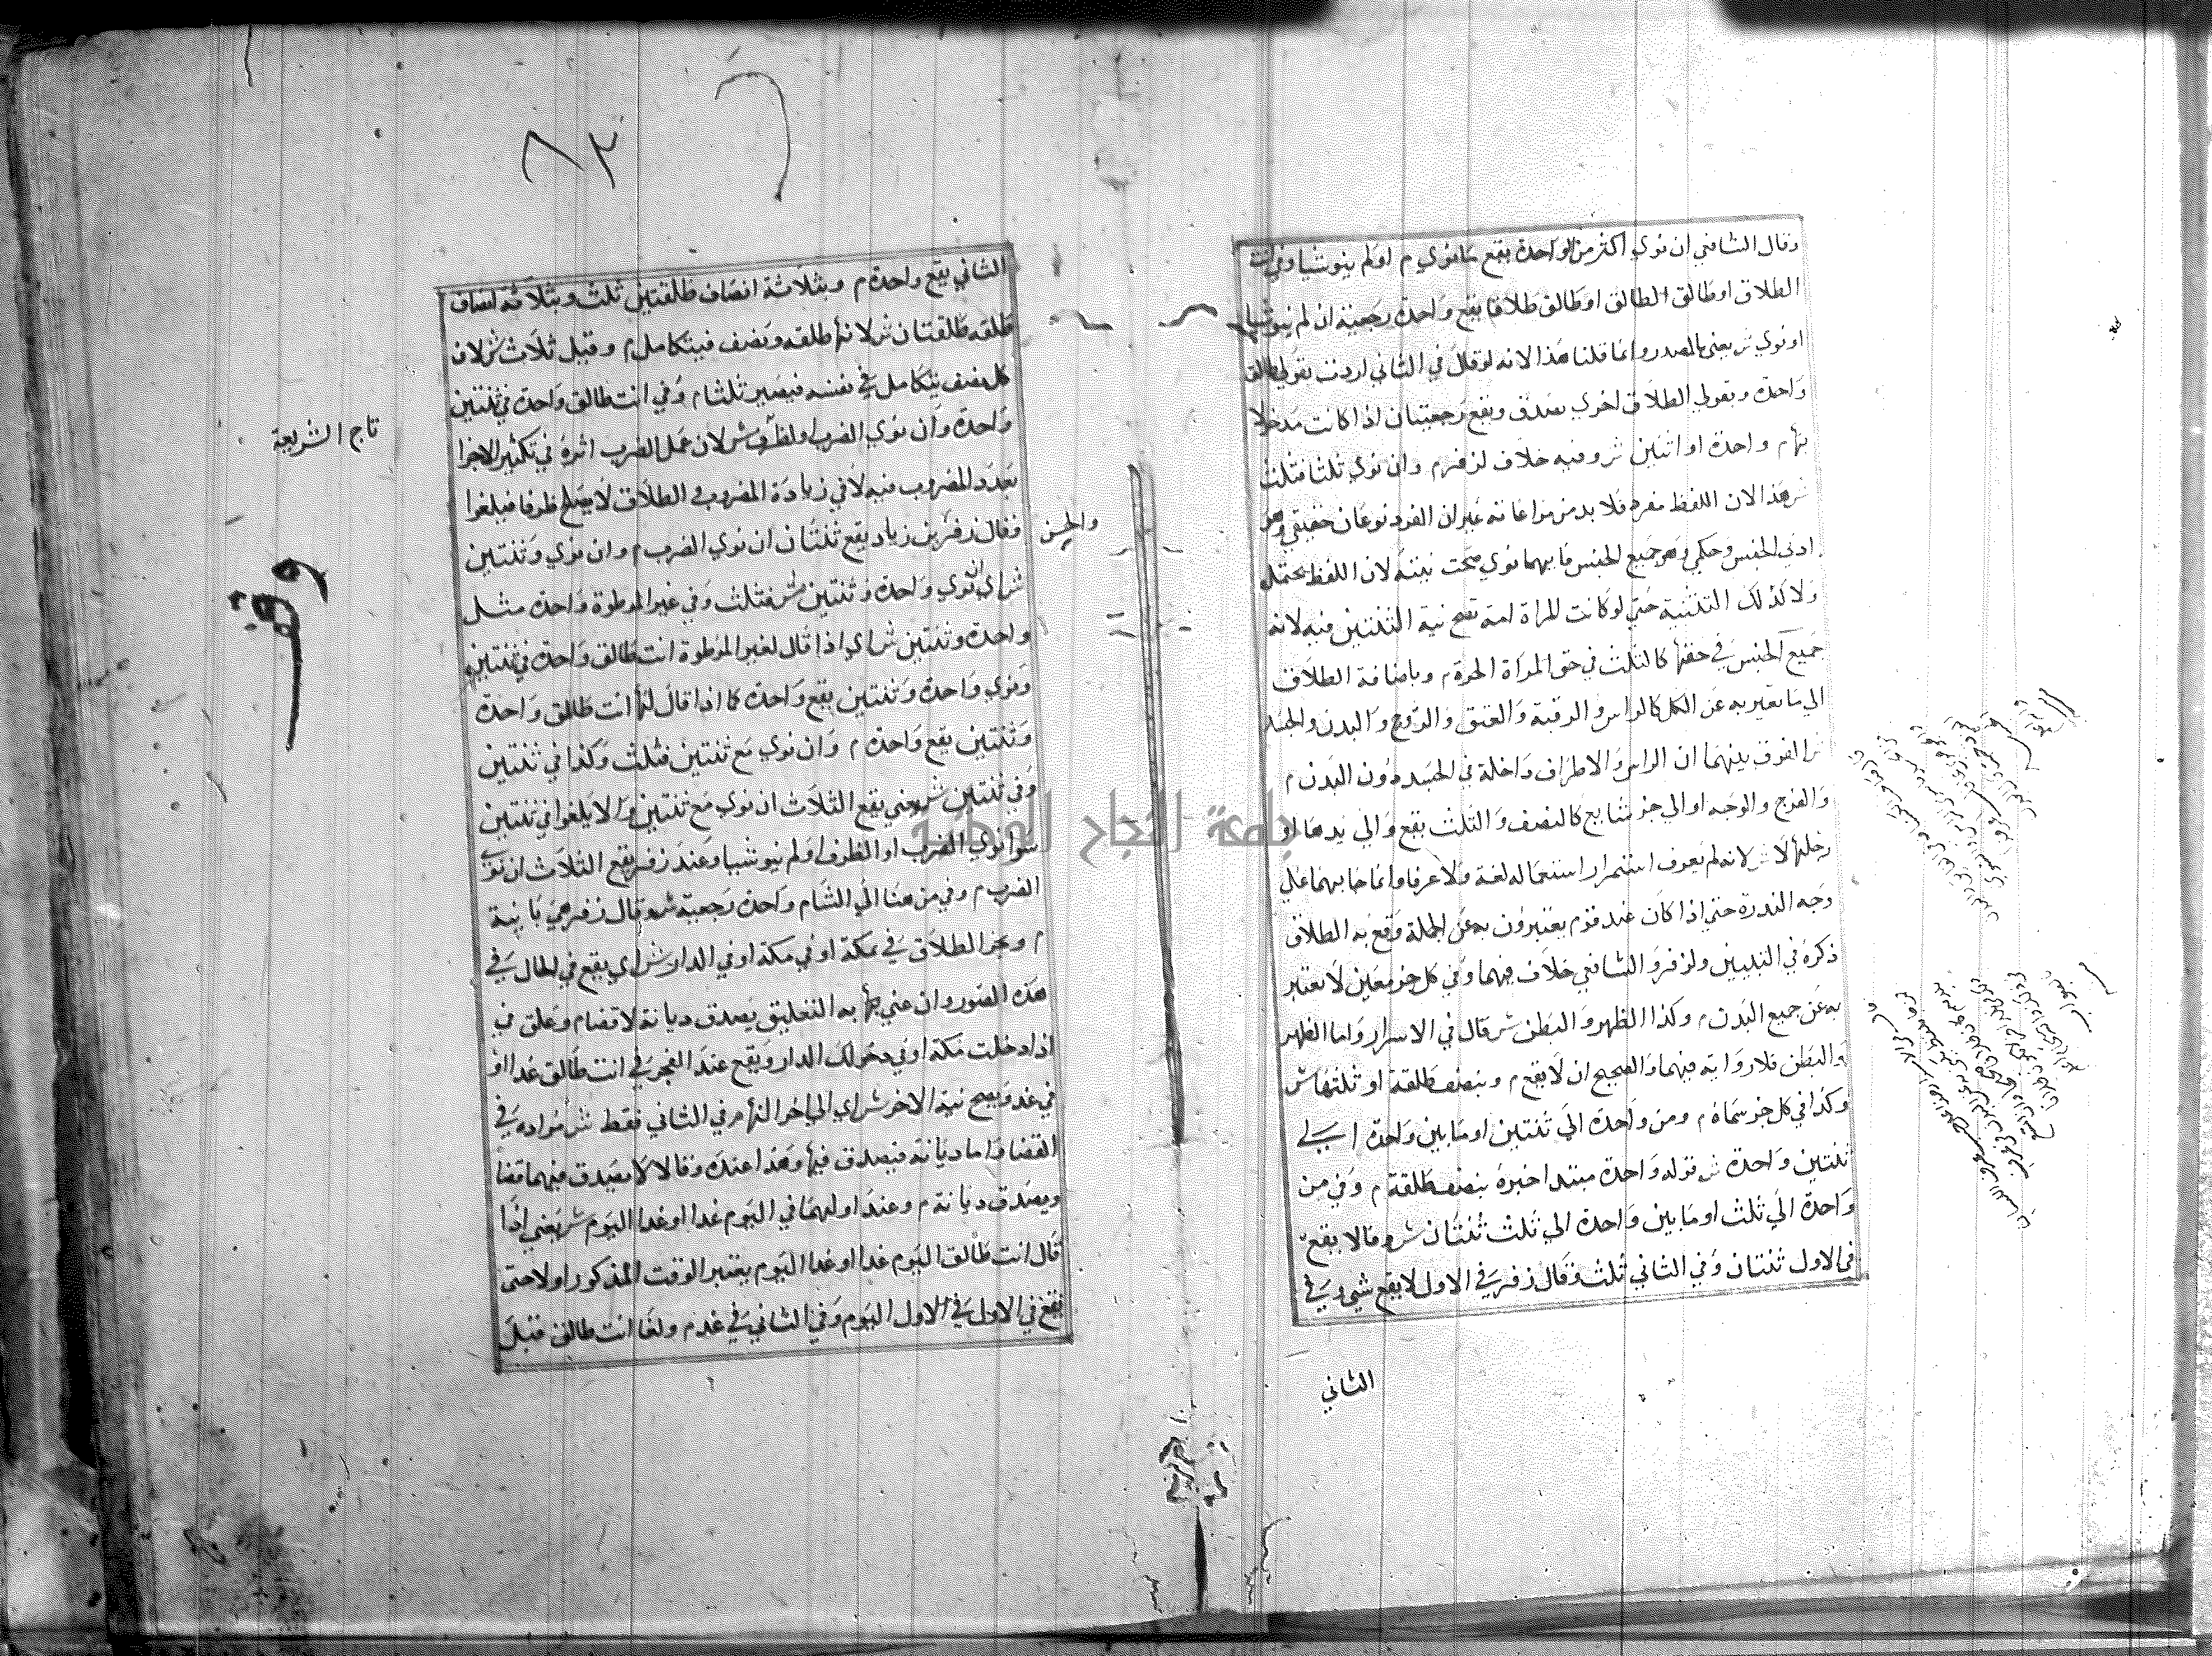 وقال الشافعي ان نوي اكثر من الواحدة يقع ما نوي م اولم ينو شيا وفي انت
الطلاق او طالق الطالق او طالق طلاقا يقع واحدة رجعية ان لم ينو شيا
او نوي ش يعني بالمصدر وانما قلنا هذا لانه لو قال في الثاني اردت بقولي طالق
واحدة وبقولي الطلاق اخري يصدق ويقع رجعيتان اذا كانت مدخولا
بها م واحدة او اثنين ش وفيه خلاف لزفر م وان نوي ثلثا فثلث
ش هذا لان اللفظ مفرد فلا بد من مراعاته غير ان الفرد نوعان حقيقي وهو
ادني الجنس وحكمي وهو جميع الجنس فايهما نوي صحت نيته لان اللفظ يحتمله
ولا كذلك التثنية حتي لو كانت المراة امة تصح نية الثنتين فيه لانه
جميع الجنس في حقها كالثلث في حق المراة الحرة م وباضافة الطلاق
الي ما يعبر به عن الكل كالراس والرقبة والعنق والروح والبدن والجسد
ش الفرق بينهما ان الراس والاطراف داخلة في الجسد دون البدن م
والفرج والوجه او الي جز شايع كالنصف والثلث يقع والي يدها او
رجلها لا ش لانه لم يعرف استمرار استعماله لغة ولا عرفا وانما جا بهما علي
وجه الندرة حتي اذا كان عند قوم يعتبرون به عن الجملة وقع به الطلاق
ذكره في التبيين ولزفر والشافعي خلاف فيهما وفي كل جز معين لا يعتبر
به عن جميع البدن م وكذا الظهر والبطن ش قال في الاسرار واما الظهر
والبطن فلا رواية فيهما والصحيح ان لا يقع م وبنصف طلقة او ثلثها ش
وكذا في كل جز سماه م ومن واحدة الي ثنتين او ما بين واحدة الي
ثنتين واحدة ش قوله واحدة مبتدا خبره بنصف طلقة م وفي من
واحدة الي ثلث او ما بين واحدة الي ثلث ثنتان ش وقالا يقع
في الاول ثنتان وفي الثاني ثلث وقال زفر في الاول لا يقع شي وفي
الثاني
٨٢
الثاني يقع واحدة م وبثلاثة انصاف طلقتين ثلث وبثلاثة انصاف
طلقة طلقتان ش لانها طلقة ونصف فيتكامل م وقيل ثلاث ش لان
كل نصف يتكامل في نفسه فيصير ثلثا م وفي انت طالق واحدة في ثنتين
واحدة وان نوي الضرب او لظرف ش لان عمل الضرب اثره في تكثير الاجزا
بعدد المضروب فيه لا في زيادة المضروب والطلاق لا يصلح ظرفا فيلغوا
وقال زفر بن زياد يقع ثنتان ان نوي الضرب م وان نوي وثنتين
والحسن
ش اي ان نوي واحدة وثنتين ش فثلث وفي غير الموطوة واحدة مثل
واحدة وثنتين ش اي اذا قال لغير الموطوة انت طالق واحدة في ثنتين
ونوي واحدة وثنتين يقع واحدة كما اذا قال لها انت طالق واحدة
وثنتين يقع واحدة م وان نوي مع ثنتين فثلث وكذا في ثنتين
وفي ثنتين ش يعني يقع الثلاث ان نوي مع ثنتين والا يلغوا في ثنتين
سوا نوي الضرب او الظرف او لم ينو شيا وعند زفر يقع الثلاث ان نوي
الضرب م وفي من هنا الي الشام واحدة رجعية ش وقال زفر هي باينة
م ونجز الطلاق في بمكة او في مكة او في الدار ش اي يقع في الحال في
هذه الصور وان عني بها به التعليق يصدق ديانة لا قضا م وعلق في
اذا دخلت مكة او في دخولك الدار ويقع عند الفجر في انت طالق غدا او
في غد ويصح نية الاخر ش اي الي اخر النهار م في الثاني فقط ش مراده في
القضا واما ديانة فيصدق فيها وهذا عنده وقالا لا يصدق فيهما قضا
ويصدق ديانة م وعند اولهما في اليوم غدا او غدا اليوم ش يعني اذا
قال انت طالق اليوم غدا او غدا اليوم يعتبر الوقت المذكور اولا حتي
يقع في الاول في الاول اليوم وفي الثاني في غد م ولغا انت طالق قبل
تاج الشريعة
وقف
جامعة النجاح الوطنية